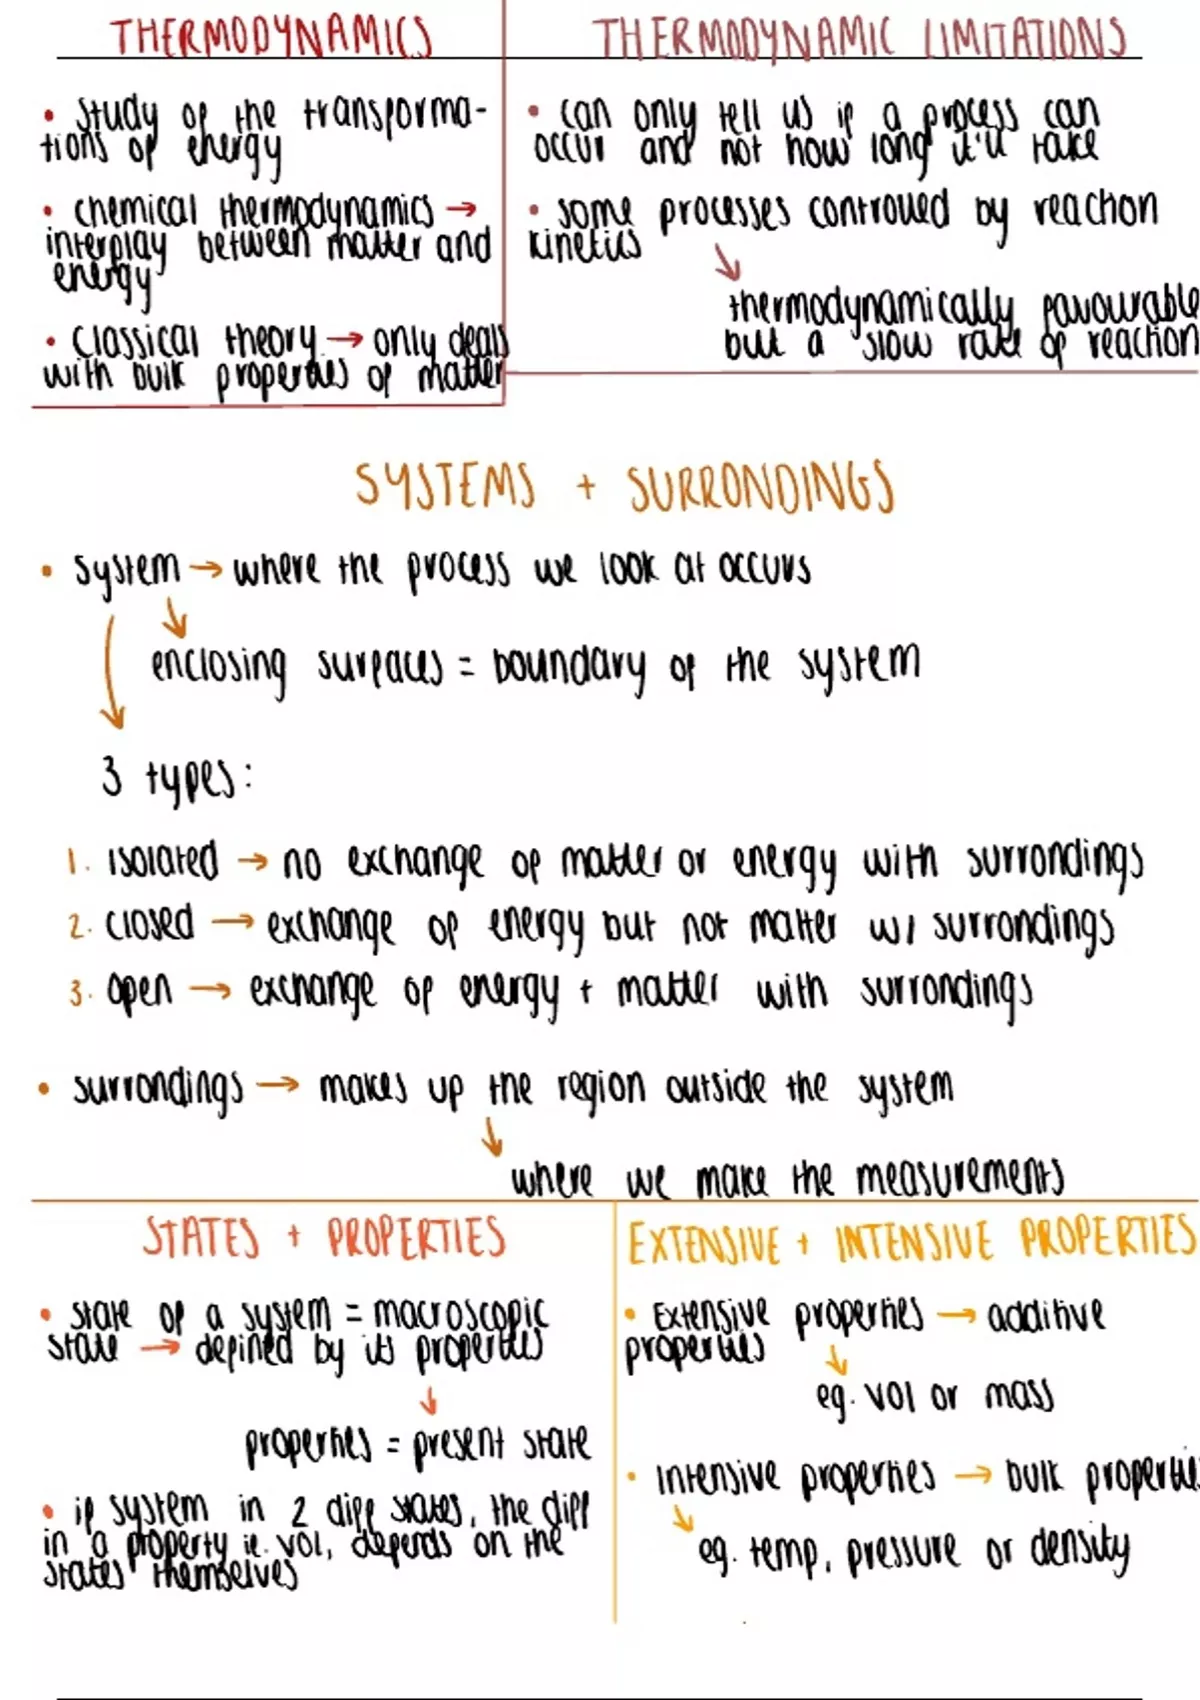 THERMODYNAMICS
• study of the transforma-
tions of energy
• chemical thermodynamics →
interplay between matter and
energy
• classical theory → only deals
with bulk properties of matter
THERMODYNAMIC LIMITATIONS
• can only tell us if a process can
occur and not how long it'll take
• some processes controlled by reaction
kinetics
↘
thermodynamically favourable
but a slow rate of reaction
SYSTEMS + SURRONDINGS
• system → where the process we look at occurs
↘
enclosing surfaces = boundary of the system
3 types:
1. isolated → no exchange of matter or energy with surrondings
2. closed → exchange of energy but not matter w/ surrondings
3. open → exchange of energy + matter with surrondings
• surrondings → makes up the region outside the system
↘
where we make the measurements
STATES + PROPERTIES
• state of a system = macroscopic
state → defined by its properties
↓
properties = present state
• if system in 2 diff states, the diff
in a property ie. vol, depends on the
states themselves
EXTENSIVE + INTENSIVE PROPERTIES
• Extensive properties → additive
properties
↘
eg. vol or mass
• Intensive properties → bulk properties
↘
eg. temp, pressure or density